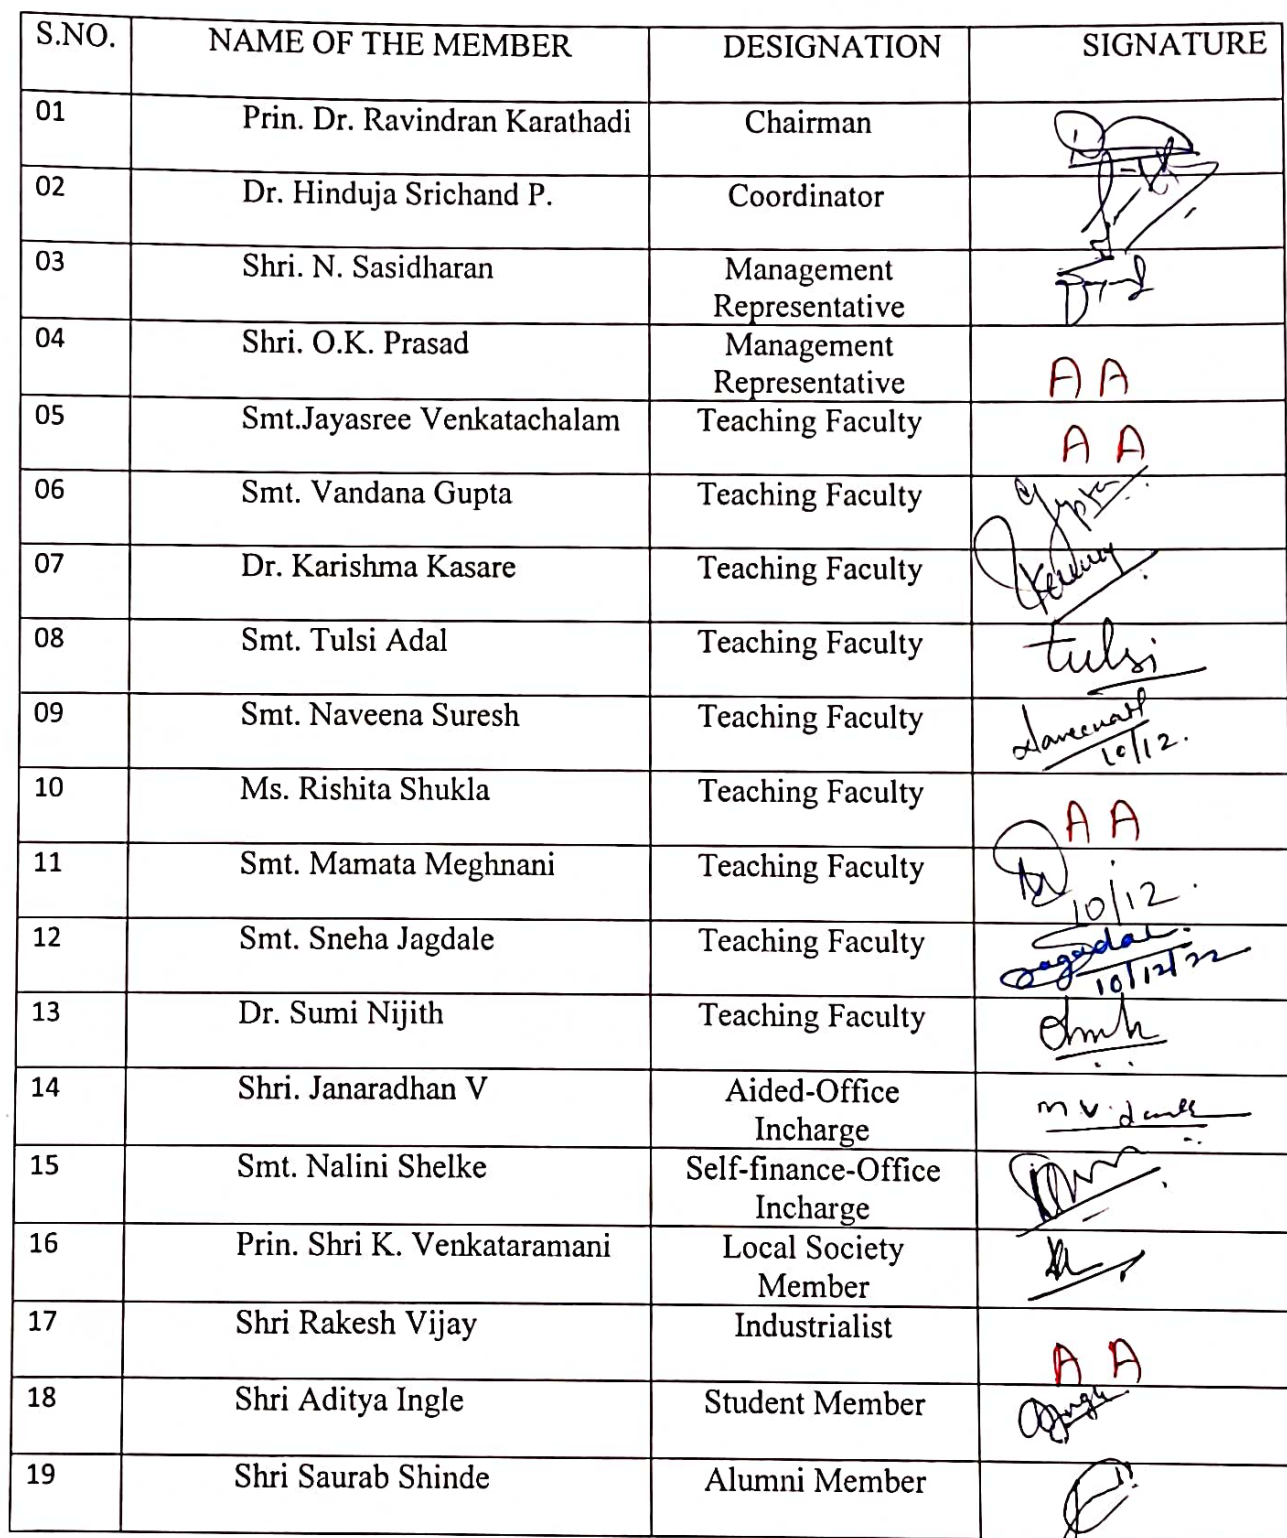 S.NO. NAME OF THE MEMBER DESIGNATION SIGNATURE
01 Prin. Dr. Ravindran Karathadi Chairman
02 Dr. Hinduja Srichand P. Coordinator
03 Shri. N. Sasidharan Management
Representative
04 Shri. O.K. Prasad Management
Representative A A
05 Smt.Jayasree Venkatachalam Teaching Faculty A A
06 Smt. Vandana Gupta Teaching Faculty Gupta
07 Dr. Karishma Kasare Teaching Faculty
08 Smt. Tulsi Adal Teaching Faculty tulsi
09 Smt. Naveena Suresh Teaching Faculty
10/12.
10 Ms. Rishita Shukla Teaching Faculty A A
11 Smt. Mamata Meghnani Teaching Faculty
10/12.
12 Smt. Sneha Jagdale Teaching Faculty
10/12/22
13 Dr. Sumi Nijith Teaching Faculty
14 Shri. Janaradhan V Aided-Office
Incharge
15 Smt. Nalini Shelke Self-finance-Office
Incharge
16 Prin. Shri K. Venkataramani Local Society
Member
17 Shri Rakesh Vijay Industrialist A A
18 Shri Aditya Ingle Student Member
19 Shri Saurab Shinde Alumni Member